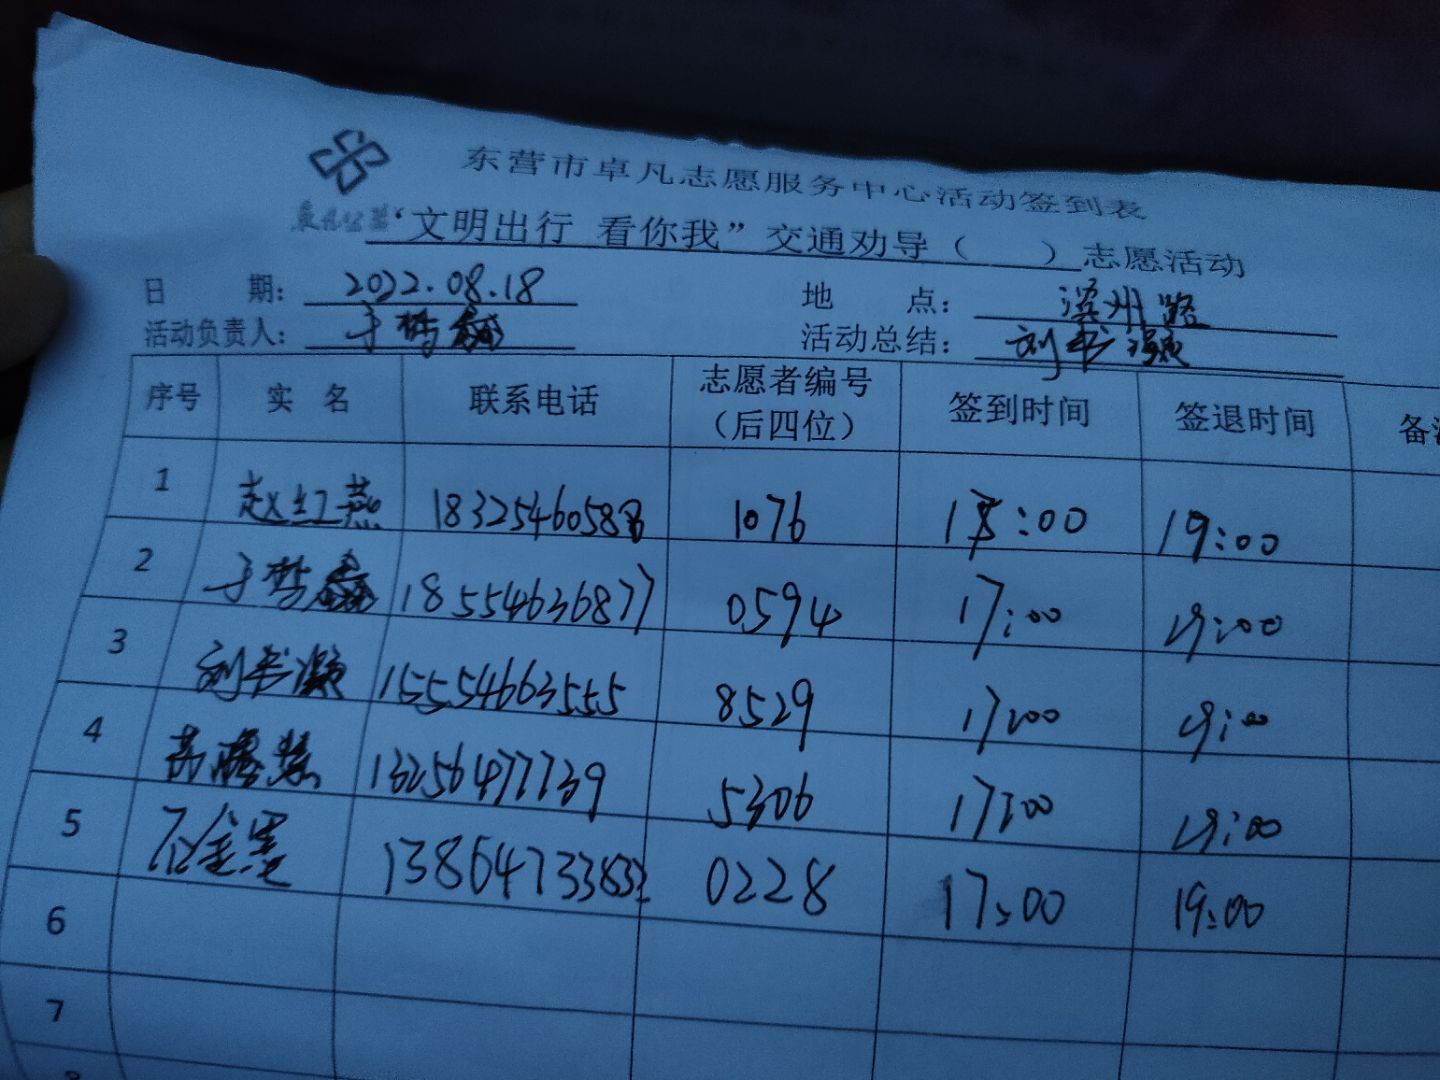 东营市卓凡志愿服务中心活动签到表
“文明出行 看你我”交通劝导（ ）志愿活动
日 期： 2022.08.18 地 点： 滨州路
活动负责人： 于哲鑫 活动总结： 刘书灏
序号 实 名 联系电话 志愿者编号（后四位） 签到时间 签退时间
1 赵红燕 18325460588 1076 19:00
2 于哲鑫 18554636877 0594 17:00 19:00
3 刘书灏 15554663555 8529 17:00 19:00
4 13256477739 5306 17:00 19:00
5 0228 17:00 19:00
6
7
8